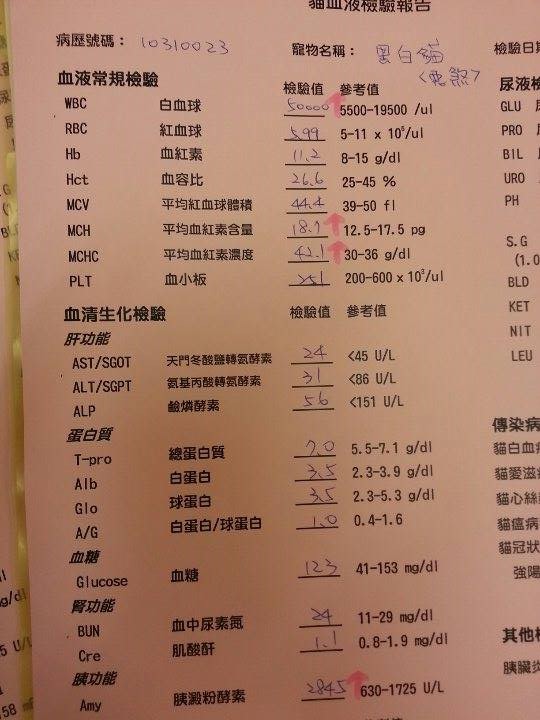 貓血液檢驗報告
病歷號碼： 10310023 寵物名稱： 黑白貓 檢驗日期
血液常規檢驗 檢驗值 參考值 尿液檢
WBC 白血球 50000 5500-19500 /ul GLU
RBC 紅血球 5.99 5-11 x 10⁶/ul PRO
Hb 血紅素 11.2 8-15 g/dl BIL
Hct 血容比 26.6 25-45 % URO
MCV 平均紅血球體積 44.4 39-50 fl PH
MCH 平均血紅素含量 18.7 12.5-17.5 pg
MCHC 平均血紅素濃度 42.1 30-36 g/dl S.G
(1.0
PLT 血小板 251 200-600 x 10³/ul BLD
血清生化檢驗 檢驗值 參考值 KET
肝功能 NIT
AST/SGOT 天門冬酸鹽轉氨酵素 24 <45 U/L LEU
ALT/SGPT 氨基丙酸轉氨酵素 31 <86 U/L
ALP 鹼燐酵素 56 <151 U/L
蛋白質 傳染病
T-pro 總蛋白質 7.0 5.5-7.1 g/dl 貓白血病
Alb 白蛋白 3.5 2.3-3.9 g/dl 貓愛滋病
Glo 球蛋白 3.5 2.3-5.3 g/dl 貓心絲
A/G 白蛋白/球蛋白 1.0 0.4-1.6 貓瘟病
血糖 貓冠狀
Glucose 血糖 123 41-153 mg/dl 強陽
腎功能
BUN 血中尿素氮 24 11-29 mg/dl
Cre 肌酸酐 1.1 0.8-1.9 mg/dl 其他檢
胰功能 胰臟炎
Amy 胰澱粉酵素 2845 630-1725 U/L